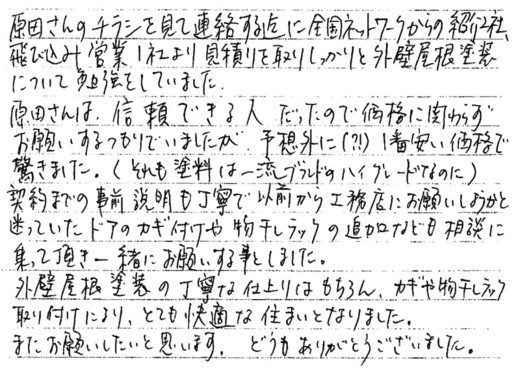 原田さんのチラシを見て連絡する迄に全国ネットワークからの紹介2社、
飛び込み営業1社より見積りを取りしっかりと外壁屋根塗装
について勉強をしていました。
原田さんは、信頼できる人だったので価格に関わらず
お願いするつもりでいましたが、予想外に(?!)1番安い価格で
驚きました。(それも塗料は一流ブランドのハイグレードなのに)
契約までの事前説明も丁寧で以前から工務店にお願いしようかと
迷っていたドアのカギ付けや物干しラックの追加なども相談に
乗って頂き一緒にお願いする事としました。
外壁屋根塗装の丁寧な仕上りはもちろん、カギや物干しラック
取り付けにより、とても快適な住まいとなりました。
またお願いしたいと思います。どうもありがとうございました。